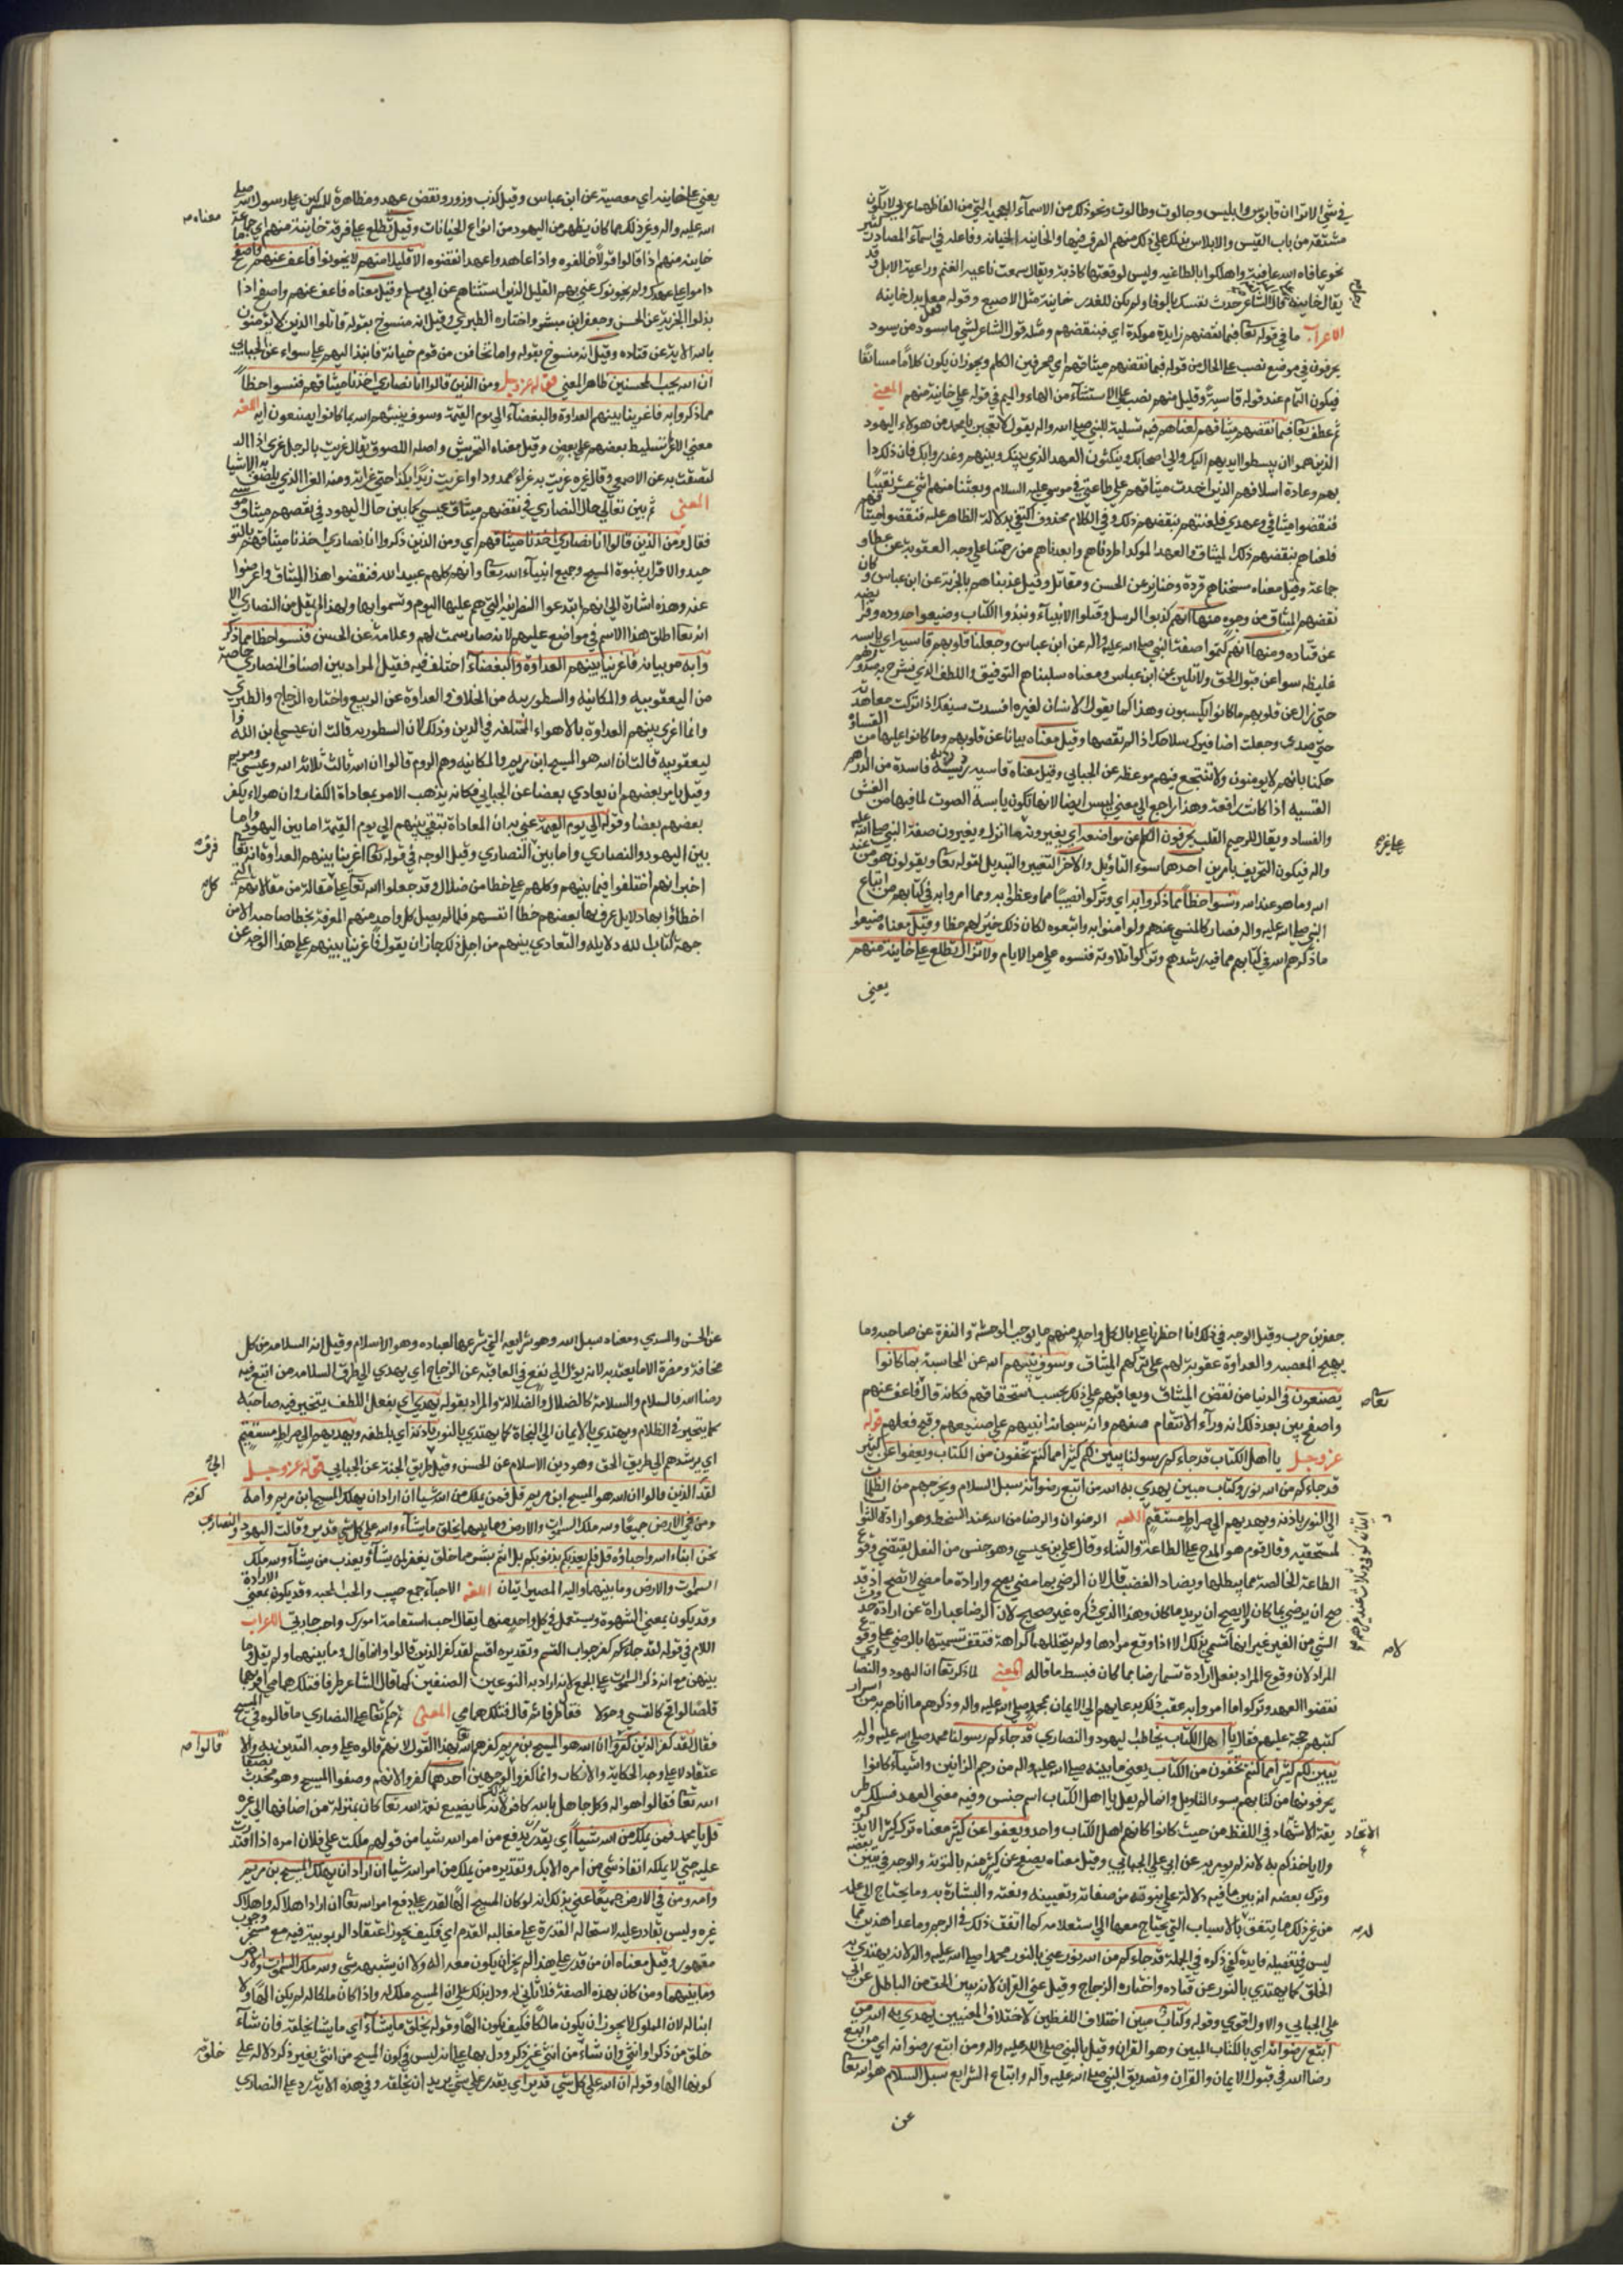 في شي الا تروا ان قابوس وابليس وجالوت وطالوت ونحو ذلك من الاسمآء الاعجمية التي من الفاظها عربي لا يكون
مشتقة من باب القبس والابلاس
نحو عافاه الله عافية واهلكوا بالطاغية وليس لوقعتها كاذبة ويقال سمعت ثاغية الغنم وراغية الابل وقد
يقال خاينة قال الشاعر حدثت نفسك بالوفا ولم تكن للغدر خاينة مثل الاصبع
الاعراب ما في قوله تعا فبما نقضهم زايدة موكدة اي فبنقضهم ومثله قول الشاعر لشي ما يسود من يسود
يحرفون في موضع نصب على الحال من قوله فبما نقضهم ميثاقهم اي محرفين الكلم ويجوز ان يكون كلاما مستانفا
فيكون التمام عند قوله قاسية وقليل منهم نصب على الاستثنآء من الهاء والميم في قوله على خاينة منهم المعني
ثم عطف تعا فبما نقضهم ميثاقهم لعناهم فيه تسلية للنبي صلى الله واله يقول لا تعجبن يا محمد من هولاء اليهود
الذين هموا ان يبسطوا ايديهم اليك والى اصحابك وينكثون العهد الذي بينك وبينهم وغدروا بك فان ذلك دا
بهم وعادة اسلافهم الذين اخذت ميثاقهم على طاعتي في زمن موسى عليه السلام وبعثنا منهم اثني عشر نقيبا
فنقضوا ميثاقي وعهدي فلعنتهم بنقضهم ذلك وفي الكلام محذوف اكتفي بدلالة الظاهر عليه فنقضوا ميثاقهم
فلعناهم بنقضهم ذلك الميثاق والعهد الموكد اي طردناهم وابعدناهم من رحمتنا على وجه العقوبة عن عطا و
جماعة وقيل معناه مسخناهم قردة وخنازير عن الحسن ومقاتل وقيل عذبناهم بالجزية عن ابن عباس وكان
نقضهم الميثاق من وجوه منها انهم كذبوا الرسل وقتلوا الانبيآء ونبذوا الكتاب وضيعوا حدوده وفرايضه
عن قتاده ومنها انهم كتموا صفة النبي صلى الله عليه واله عن ابن عباس وجعلنا قلوبهم قاسية اي يابسه
غليظه تنبوا عن قبول الحق ولا تلين عن ابن عباس ومعناه سلبناهم التوفيق واللطف الذي تشرح به صدورهم
حتي ران على قلوبهم ما كانوا يكسبون وهذا كما يقول الانسان لغيره افسدت سيفك اذا تركت معاهدته
حتي صدي وجعلت اظافيرك سلاحك اذا لم تقصها وقيل معناه بيانا عن قلوبهم وما كانوا عليها من القساوة
حكمنا بانهم لا يومنون ولا تنتجع فيهم موعظه عن الجبايي وقيل معناه قاسية رديه فاسدة من الدراهم
القسيه اذا كانت زائفة وهذا راجع الى معني اليبس ايضا لانها تكون يابسة الصوت لما فيها من الغش
والفساد ويقال للرحيم القلب يحرفون الكلم عن مواضعه اي يغيرونه عما انزل ويغيرون صفة النبي صلى الله عليه
واله فيكون التحريف بامرين احدهما سوء التاويل والاخر التغيير والتبديل لقوله تعا ويقولون هو من عند
الله وما هو من عند الله ونسوا حظا مما ذكروا به اي وتركوا نصيبا مما وعظوا به ومما امروا به في كتابهم من اتباع
النبي صلى الله عليه واله فصار كالمنسي عندهم ولو امنوا به واتبعوه لكان ذلك خير لهم حظا وقيل معناه ضيعوا
ما ذكرهم الله في كتابهم مما فيه رشدهم وتركوا تلاوته فنسوه على مر الايام ولا تزال تطلع على خاينة منهم
يعني
يعني على خاينه اي معصية عن ابن عباس وقيل كذب وزور ونقض عهد ومظاهرة للمشركين على رسول الله صلى
الله عليه واله وغير ذلك مما كان يظهر من اليهود من انواع الخيانات وقيل تطلع على فرقة خاينة منهم اي جماعة
معناه
خاينه منهم اذا قالوا قولا خالفوه واذا عاهدوا عهدا نقضوه الا قليلا منهم لم يخونوا فاعف عنهم واصفح
داموا على عهدك ولم يخونوك عني بهم القليل الذين استثناهم عن ابي مسلم وقيل معناه فاعف عنهم واصفح اذا
بذلوا الجزية عن الحسن وجعفر ابن مبشر واختاره الطبري وقيل انه منسوخ بقوله قاتلوا الذين لا يومنون
بالله الاية عن قتاده وقيل انه منسوخ بقوله واما تخافن من قوم خيانة فانبذ اليهم على سواء عن الجبايي
ان الله يحب المحسنين ظاهر المعني قوله عز وجل ومن الذين قالوا انا نصاري اخذنا ميثاقهم فنسوا حظا
مما ذكروا به فاغرينا بينهم العداوة والبغضآء الى يوم القيمة وسوف ينبئهم الله بما كانوا يصنعون ايه اللغه
معني الاغراء تسليط بعضهم على بعض وقيل معناه التحريش واصله اللصوق يقال غريت بالرجل غري اذا
لصقت به عن الاصمعي وقال غيره غريت به غراء ممدود واغريت زيدا بكذا حتي غري به ومنه الغرا الذي يلصق به الاشيا
المعني ثم بين تعالي حال النصاري في نقضهم ميثاق عيسي كما بين حال اليهود في نقضهم ميثاق موسي
فقال ومن الذين قالوا انا نصاري اخذنا ميثاقهم اي ومن الذين ذكروا انا نصاري اخذنا ميثاقهم بالتو
حيد والاقرار بنبوة المسيح وجميع انبيآء الله تعا وانهم كلهم عبيد الله فنقضوا هذا الميثاق واعرضوا
عنه وهذه اشارة الى انهم ابتدعوا النصرانية التي هم عليها اليوم وتسموا بها ولهذا لم يقل من النصاري الا
انه تعا اطلق هذا الاسم في مواضع عليهم لانه صار سمة لهم وعلامة عن الحسن فنسوا حظا مما ذكر
وا به مر بيانه فاغرينا بينهم العداوة والبغضآء اختلف فيه فقيل المراد بين اصناف النصاري خاصة
من اليعقوبيه والملكانيه والنسطوريه من الخلاف والعداوة عن الربيع واختاره الزجاج والطبري
وانما اغري بينهم العداوة بالاهواء المختلفه في الدين وذلك لان النسطوريه قالت ان عيسي ابن الله
ليعقوبية قالت ان الله هو المسيح ابن مريم والملكانيه وهم الروم قالوا ان الله ثالث ثلاثة الله وعيسي ومريم
وقيل يامر بعضهم ان يعادي بعضا عن الجبايي فكانه يذهب الى الامر بمعاداة الكفار وان هولاء يكفر
بعضهم بعضا وقوله الى يوم القيمة عني به ان المعاداة تبقي بينهم الى يوم القيمة اما بين اليهود واما
بين اليهود والنصاري واما بين النصاري وقيل الوجه في قوله تعا اغرينا بينهم العداوة انه تعا
اخبر انهم اختلفوا فيما بينهم وكلهم على خطا من ضلال وقد جعل الله تعا على كل مقالة من مقالاتهم التي
اخطاؤا بها دلايل عرف بها بعضهم خطا انفسهم فلما لم يصل كل واحد منهم المعرفة بخطا صاحبه الا من
جهة كتاب الله ودلايله والتعادي بينهم من اجل ذلك جاز ان يقول فاغرينا بينهم على هذا الوجه عن
جعفر بن حرب وقيل الوجه في ذلك انا اخطرنا على بال كل واحد منهم ما يوجب الوحشة والنفرة عن صاحبه وما
يهيج العصبيه والعداوة عقوبة لهم على تركهم الميثاق وسوف ينبئهم الله عن المحاسبة بما كانوا
يصنعون في الدنيا من نقض الميثاق ويعاقبهم على ذلك بحسب استحقاقهم فكانه قال فاعف عنهم
واصفح بين بعد ذلك انه ورآء الانتقام منهم وانه سبحانه انبيهم على صنيعهم وقبح فعلهم قوله
عز وجل يا اهل الكتاب قد جاءكم رسولنا يبين لكم كثيرا مما كنتم تخفون من الكتاب ويعفوا عن كثير
قد جاءكم من الله نور وكتاب مبين يهدي به الله من اتبع رضوانه سبل السلام ويخرجهم من الظلمات
الى النور باذنه ويهديهم الى صراط مستقيم اللغه الرضوان والرضا من الله ضد السخط وهو ارادة الثوا
لمستحقيه وقال قوم هو المدح على الطاعة والثناء وقال علي بن عيسي وهو جنس من الفعل يقتضي وقوع
الطاعة الخالصة مما يبطلها ويضاد الغضب قال لان الرضي بما مضي يصح وارادة ما مضي لا تصح اذ قد
صح ان يرضي بما كان ولا يصح ان يريد ما كان وهذا الذي ذكره غير صحيح لان الرضا عبارة عن ارادة حدوث
الشي من الغير غير انها لا تسمي بذلك الا اذا وقع مرادها ولم يتخللها كراهة فتقف تسميتها بالرضي على وقوع
المراد لان وقوع المراد يفعل ارادة تسما رضا بما كان فبسط ما قاله المعني لما ذكر تعا ان اليهود والنصاري
نقضوا العهد وتركوا ما امروا به عقب ذلك بدعايهم الى الايمان بمحمد صلى الله عليه واله وذكرهم ما اتاهم به من اسرار
كتبهم حجة عليهم فقال يا اهل الكتاب يخاطب اليهود والنصاري قد جاءكم رسولنا محمد صلى الله عليه واله
يبين لكم كثيرا مما كنتم تخفون من الكتاب يعني ما بينه صلى الله عليه واله من رجم الزانيين واشيآء كانوا
يحرفونها من كتابهم بسوء التاويل وانما لم يقل يا اهل الكتابين لان الكتاب اسم جنس وفيه معني العهد
الاتحاد
ولا ياخذكم به لانه لم يومر به عن ابي علي الجبايي وقيل معناه يصفح عن كثير منهم بالتوبة والوجه في تبيين بعضه
وترك بعضه انه بين ما فيه دلالة على نبوته من صفاته ونعته والبشارة به وما يحتاج الى علمه
من غير ذلك مما يتفق له الاسباب التي يحتاج معها الى استعلامه كما اتفق ذلك في الرجم وما عدا هذين مما
ليس في تفصيله فايدة يكفي ذكره في الجملة قد جاءكم من الله نور عني بالنور محمدا صلى الله عليه واله لانه يهتدي به
الخلق كما يهتدي بالنور عن قتاده واختاره الزجاج وقيل عني القران لانه يبين الحق من الباطل عن ابي
علي الجبايي والاول اقوي وقوله وكتاب مبين اختلاف اللفظين لاختلاف المعنيين يهدي به الله من
اتبع رضوانه اي بالكتاب المبين وهو القران وقيل بالنبي صلى الله عليه واله ومن اتبع رضوانه اي من اتبع
رضا الله في قبول الايمان والقران وتصديق النبي صلى الله عليه وآله واتباع الشرايع سبل السلام هو الله تعا
عن
عن الحسن والسدي ومعناه سبل الله وهو شرايعه التي شرعها لعباده وهو الاسلام وقيل انه السلامة من كل
مخافة ومضرة الا ما يعتد به لانه يؤل الى نفع في العاقبه عن الزجاج اي يهدي الى طرق السلامة من اتبع ما فيه
رضا الله والسلام والسلامة كالضلال والضلالة والمراد بقوله يهدي اي يفعل اللطف
كما يتحير في الظلام ويهتدي بالايمان الى النجاة كما يهتدي بالنور باذنه اي بلطفه ويهديهم الى صراط مستقيم
اي يرشدهم الى طريق الحق وهو دين الاسلام عن الحسن وقيل طريق الجنة عن الجبايي قوله عز وجل
لقد الذين قالوا ان الله هو المسيح ابن مريم قل فمن يملك من الله شيا ان اراد ان يهلك المسيح ابن مريم وامه
كفر
ومن في الارض جميعا ولله ملك السموات والارض وما بينهما يخلق ما يشآء والله على كل شي قدير وقالت اليهود والنصاري
نحن ابناء الله واحباؤه قل فلم يعذبكم بذنوبكم بل انتم بشر مما خلق يغفر لمن يشآء ويعذب من يشآء ولله ملك
السموات والارض وما بينهما واليه المصير ايتان اللغه الاحبآء جمع حبيب والحب المحبه وقد يكون بمعني الارادة
وقد يكون بمعني الشهوة ويستعمل في كل واحد منهما يقال احب استقامة امورك واحب جاريتي الاعراب
اللام في قوله لقد جاءكم كفر جواب القسم وتقديره اقسم لقد كفر الذين قالوا وانما قال وما بينهما ولم يقل وما
بينهن مع انه ذكر السموات على الجمع لانه اراد به النوعين او الصنفين كما قال الشاعر
قلصا لواقح كالقسي وحولا فقال طرقا ثم قال فتلك هما همي المعني ثم حكم تعا على النصاري ما قالوه في المسيح
فقال لقد كفر الذين قالوا ان الله هو المسيح بن مريم كفرهم الله بهذا القول لانهم قالوه على وجه التدين به والا
قالوا
عتقاد لا على وجه الحكاية والانكار وانما كفروا لوجهين احدهما كفروا لانهم وصفوا المسيح وهو محدث
الله تعا فقالوا هو اله وكل جاهل بالله كافر لانه لما يضيع نعمة الله تعا كان بمنزلة من اضافها الى غيره
قل يا محمد فمن يملك من الله شيئا اي يقدر ان يدفع من امر الله شيا من قولهم ملكت على فلان امره اذا اقتدرت
عليه حتي لا يملك انفاذ شي من امره الا بك وتقديره من يملك من امر الله شيا ان اراد ان يهلك المسيح بن مريم
وامه ومن في الارض جميعا عني بذلك انه لو كان المسيح الها لقدر على دفع امر الله تعا ان اراد اهلاكه واهلاك
غيره وليس بقادر عليه لاستحالة القدرة على مغالبة القديم اي فكيف يجوز اعتقاد الربوبية فيه مع
مقهور وقيل معناه ان من قدر على هذا لم يجز ان يكون معه اله ولا ان يشبهه شي ولله ملك السموات والارض
وما بينهما ومن كان بهذه الصفة فلا ثاني له ودل بذلك على ان المسيح ملك له واذا كان ملكا له لم يكن الها ولا
ابنا له لان المملوك لا يجوز ان يكون مالكا فكيف يكون الها وقوله يخلق ما يشآء اي ما يشا يخلقه فان شآء
خلق من ذكر وانثي وان شآء من انثي غير ذكر ودل بها على انه ليس في كون المسيح من انثي بغير ذكر دلالة على
خلق
كونها الها وقوله ان الله على كل شي قدير اي يقدر على شي يريد ان يخلقه وفي هذه الاية رد على النصاري